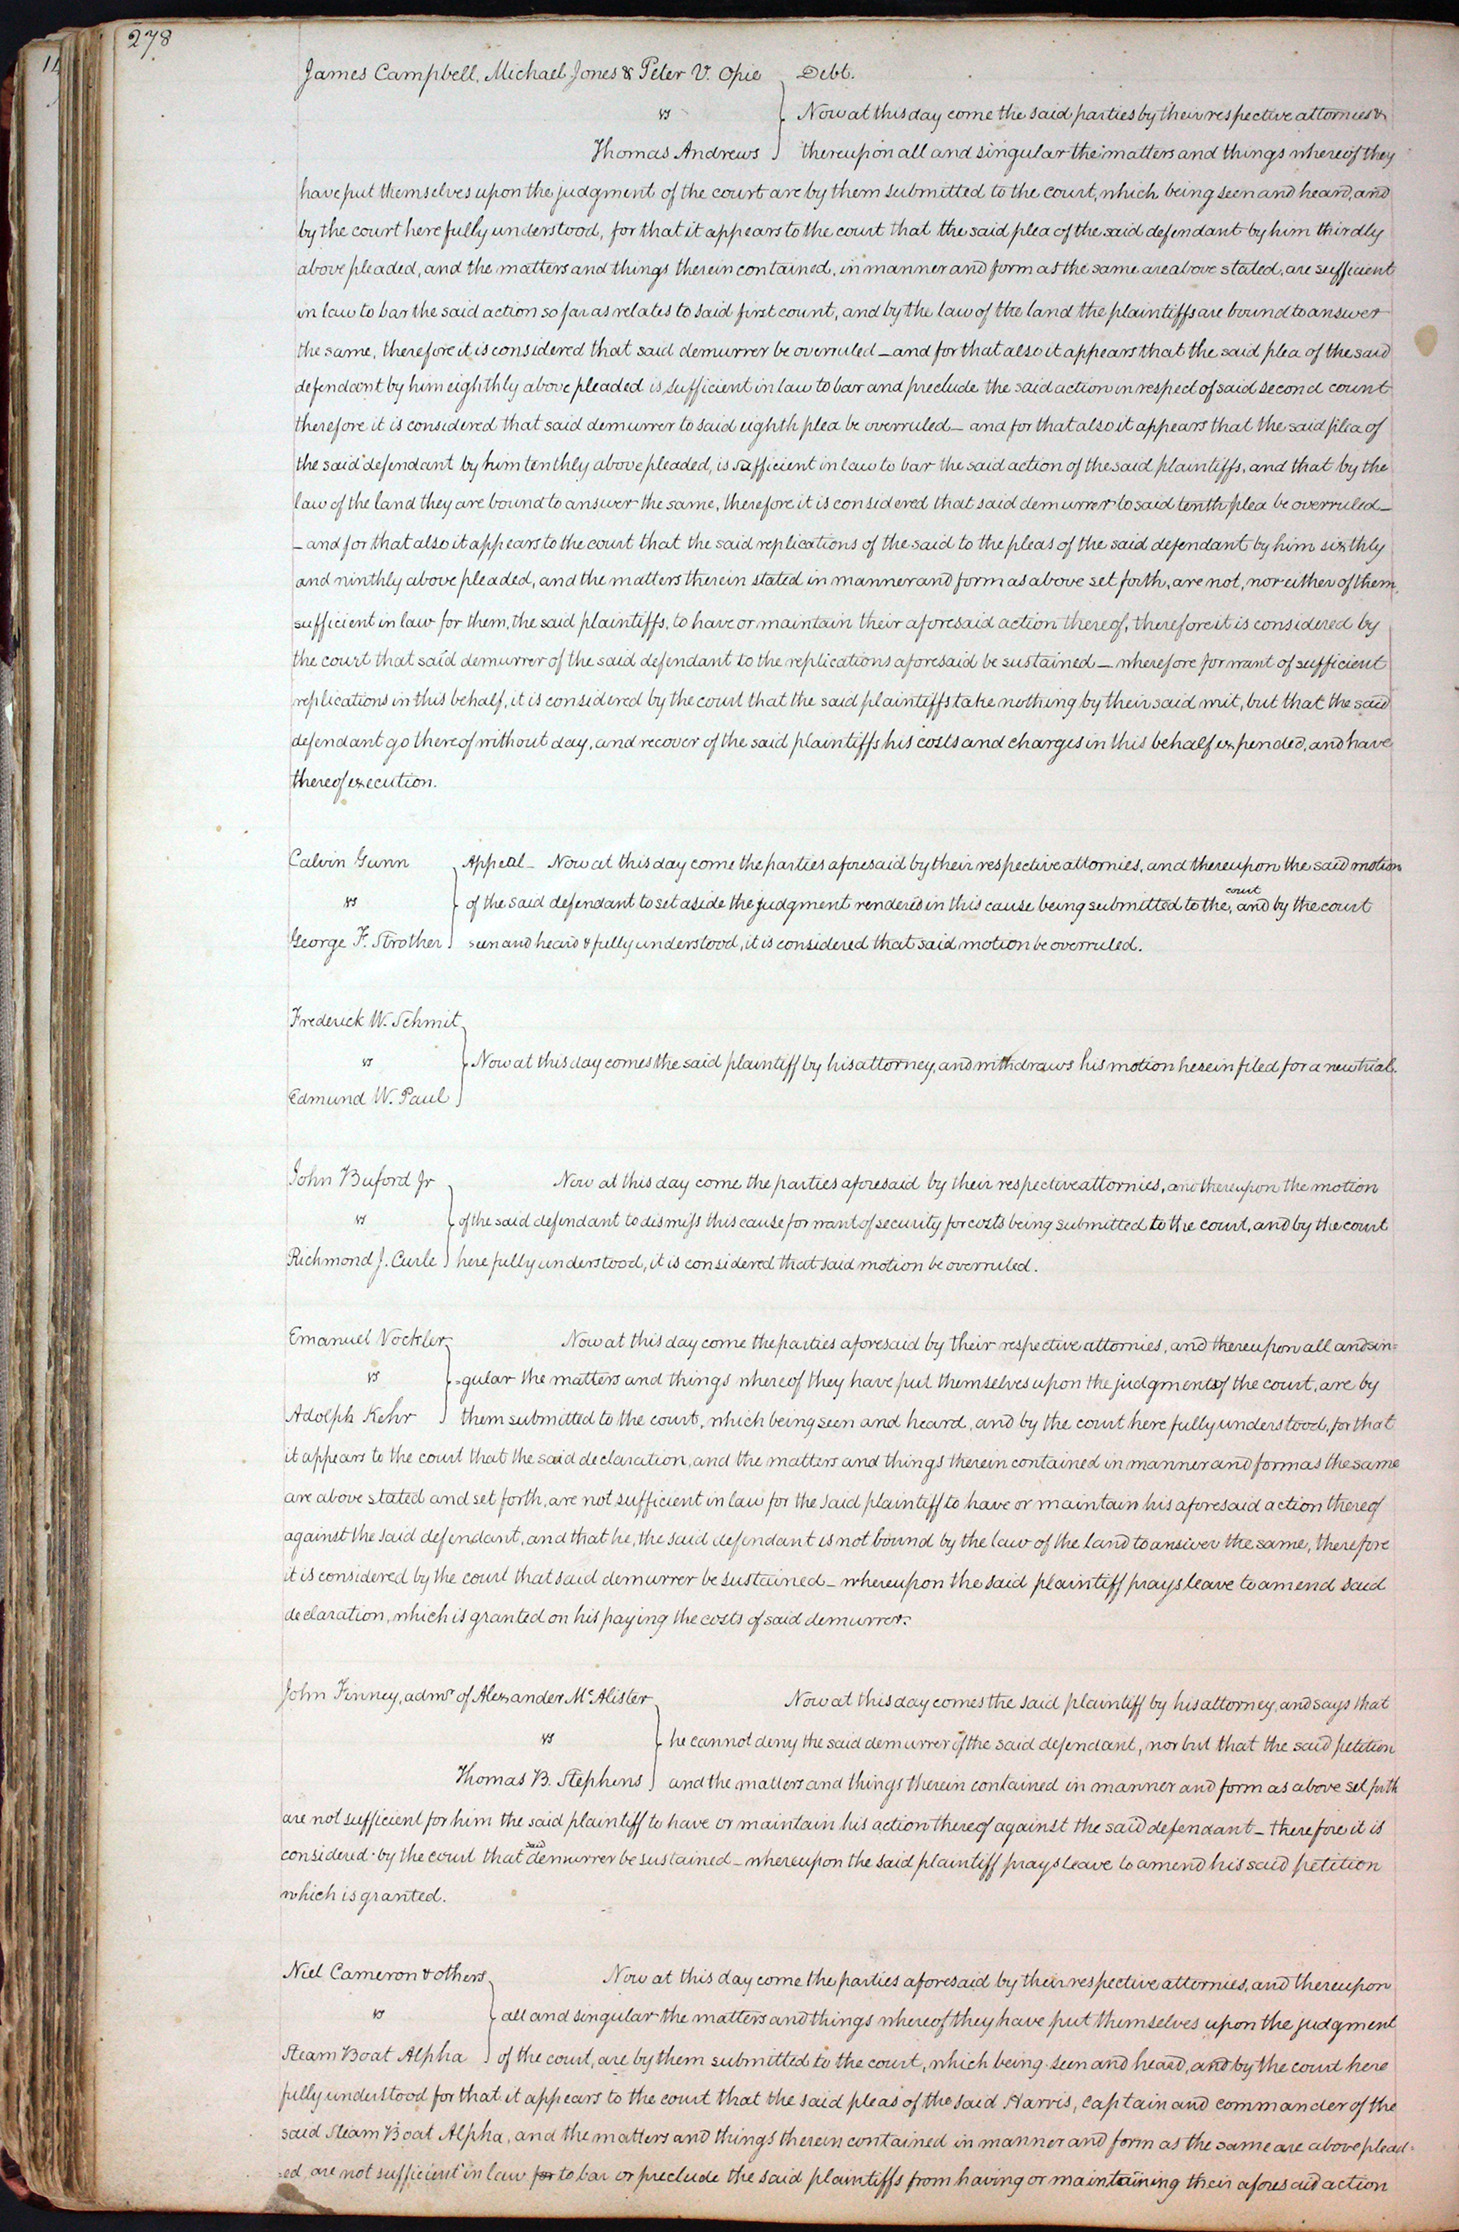 278
14
James Campbell, Michael Jones & Peter V. Opie Debt.
vs Now at this day come the said parties by their respective attornies &
Thomas Andrews thereupon all and singular the matters and things whereof they
have put themselves upon the judgment of the court are by them submitted to the court, which being seen and heard, and
by the court here fully understood, for that it appears to the court that the said plea of the said defendant by him thirdly
above pleaded, and the matters and things therein contained, in manner and form as the same are above stated, are sufficient
in law to bar the said action so far as relates to said first count, and by the law of the land the plaintiffs are bound to answer
the same, therefore it is considered that said demurrer be overruled – and for that also it appears that the said plea of the said
defendant by him eighthly above pleaded is sufficient in law to bar and preclude the said action in respect of said second count
therefore it is considered that said demurrer to said eighth plea be overruled – and for that also it appears that the said plea of
the said defendant by him tenthly above pleaded, is sufficient in law to bar the said action of the said plaintiffs, and that by the
law of the land they are bound to answer the same, therefore it is considered that said demurrer to said tenth plea be overruled –
– and for that also it appears to the court that the said replications of the said to the pleas of the said defendant by him sixthly
and ninthly above pleaded, and the matters therein stated in manner and form as above set forth, are not, nor either of them,
sufficient in law for them, the said plaintiffs, to have or maintain their aforesaid action thereof, therefore it is considered by
the court that said demurrer of the said defendant to the replications aforesaid be sustained – wherefore for want of sufficient
replications in this behalf, it is considered by the court that the said plaintiffs take nothing by their said writ, but that the said
defendant go thereof without day, and recover of the said plaintiffs his costs and charges in this behalf expended, and have
thereof execution.
Calvin Gunn Appeal – Now at this day come the parties aforesaid by their respective attornies, and thereupon the said motion
vs of the said defendant to set aside the judgment rendered in this cause being submitted to the court, and by the court
George F. Strother seen and heard & fully understood, it is considered that said motion be overruled.
Frederick W. Schmit
vs Now at this day comes the said plaintiff by his attorney, and withdraws his motion herein filed for a new trial.
Edmund W. Paul
John Buford Jr Now at this day come the parties aforesaid by their respective attornies, and thereupon the motion
vs of the said defendant to dismiss this cause for want of security for costs being submitted to the court, and by the court
Richmond J. Curle here fully understood, it is considered that said motion be overruled.
Emanuel Vockler Now at this day come the parties aforesaid by their respective attornies, and thereupon all and sin=
vs =gular the matters and things whereof they have put themselves upon the judgment of the court, are by
Adolph Kehr them submitted to the court, which being seen and heard, and by the court here fully understood, for that
it appears to the court that the said declaration, and the matters and things therein contained in manner and form as the same
are above stated and set forth, are not sufficient in law for the said plaintiff to have or maintain his aforesaid action thereof
against the said defendant, and that he, the said defendant is not bound by the law of the land to answer the same, therefore
it is considered by the court that said demurrer be sustained – whereupon the said plaintiff prays leave to amend said
declaration, which is granted on his paying the costs of said demurrer.
John Finney, admr of Alexander McAlister Now at this day comes the said plaintiff by his attorney, and says that
vs he cannot deny the said demurrer of the said defendant, nor but that the said petition
Thomas B. Stephens and the matters and things therein contained in manner and form as above set forth
are not sufficient for him the said plaintiff to have or maintain his action thereof against the said defendant – therefore it is
considered by the court that said demurrer be sustained – whereupon the said plaintiff prays leave to amend his said petition
which is granted.
Niel Cameron & others Now at this day come the parties aforesaid by their respective attornies, and thereupon
vs all and singular the matters and things whereof they have put themselves upon the judgment
Steam Boat Alpha of the court, are by them submitted to the court, which being seen and heard, and by the court here
fully understood for that it appears to the court that the said pleas of the said Harris, captain and commander of the
said Steam Boat Alpha, and the matters and things therein contained in manner and form as the same are above plead=
=ed, are not sufficient in law for to bar or preclude the said plaintiffs from having or maintaining their aforesaid action